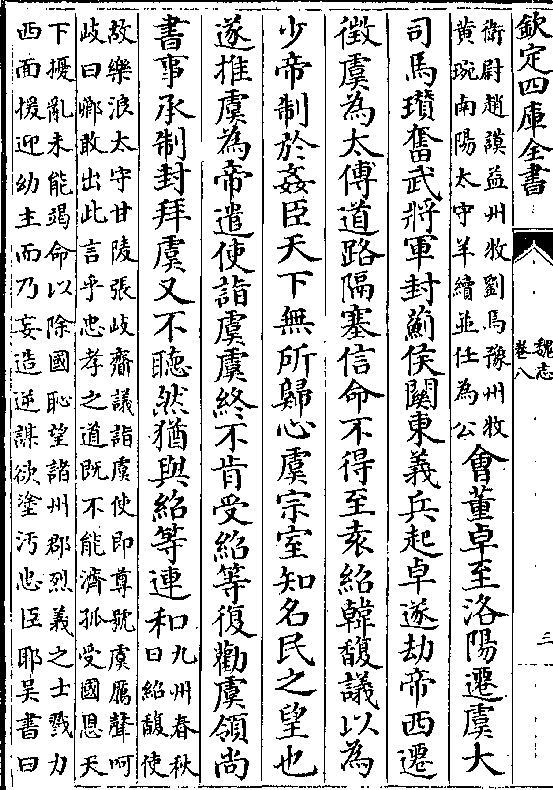 欽定四庫全書
魏志
卷八
三
衛尉趙謨益州牧劉焉豫州牧
黄琬南陽太守羊續並任為公
會董卓至洛陽遷虞大
司馬瓉奮武將軍封薊侯關東義兵起卓遂劫帝西遷
徵虞為太傅道路隔塞信命不得至袁紹韓馥議以為
少帝制於姦臣天下無所歸心虞宗室知名民之望也
遂推虞為帝遣使詣虞虞終不肯受紹等復勸虞領尚
書事承制封拜虞又不聽然猶與紹等連和
九州春秋
曰紹馥使
故樂浪太守甘陵張岐齎議詣虞使即尊號虞厲聲呵
岐曰卿敢出此言乎忠孝之道既不能濟孤受國恩天
下擾亂未能竭命以除國恥望諸州郡烈義之士戮力
西面援迎幼主而乃妄造逆謀欲塗汚忠臣耶吴書曰